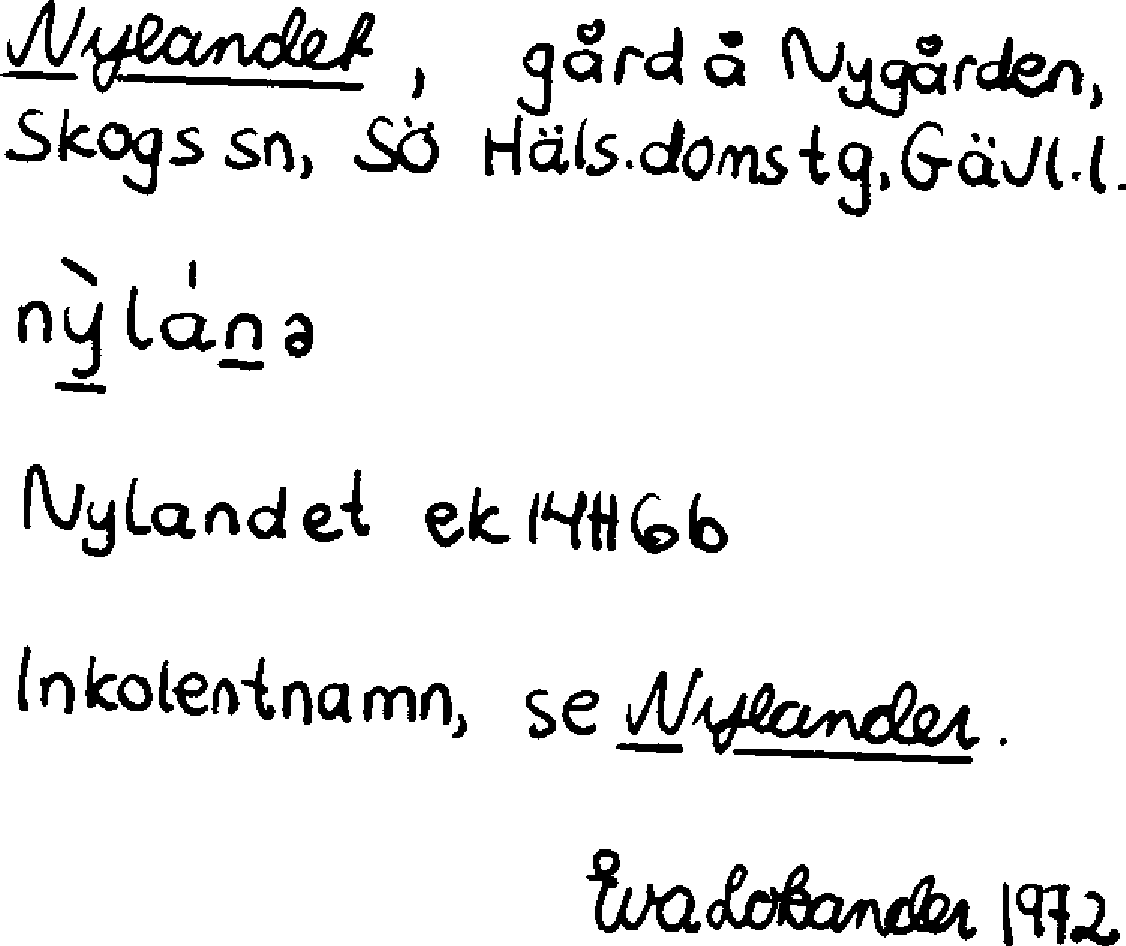 Nylandet, gård å Nygården,
Skogs sn, Sö Häls.domstg, Gävl.l.
nỳ̠lán̠ə
Nylandet ek 14H6b
Inkolentnamn, se Nylander.
1972